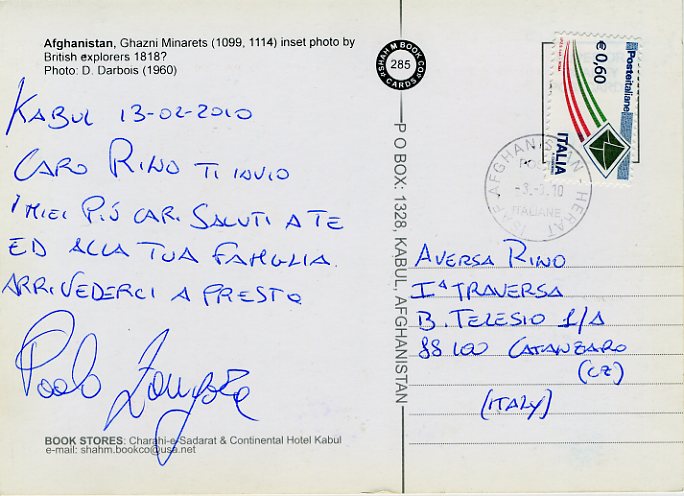 Afghanistan, Ghazni Minarets (1099, 1114) inset photo by
British explorers 1818?
Photo: D. Darbois (1960)
KABUL 13-02-2010
CARO RINO TI INVIO
I MIEI PIÙ CARI SALUTI A TE
ED ALLA TUA FAMIGLIA.
ARRIVEDERCI A PRESTO
Paolo
BOOK STORES: Charahi-e-Sadarat & Continental Hotel Kabul
e-mail: shahm.bookco@usa.net
SHAH M BOOK CO
285
CARDS
P O BOX: 1328, KABUL, AFGHANISTAN
€ 0,60
Posteitaliane
ITALIA
AFGHANISTAN - HERAT
POSTE
ITALIANE
AVERSA RINO
Iª TRAVERSA
B. TELESIO 1/A
88100 CATANZARO
(CZ)
(ITALY)